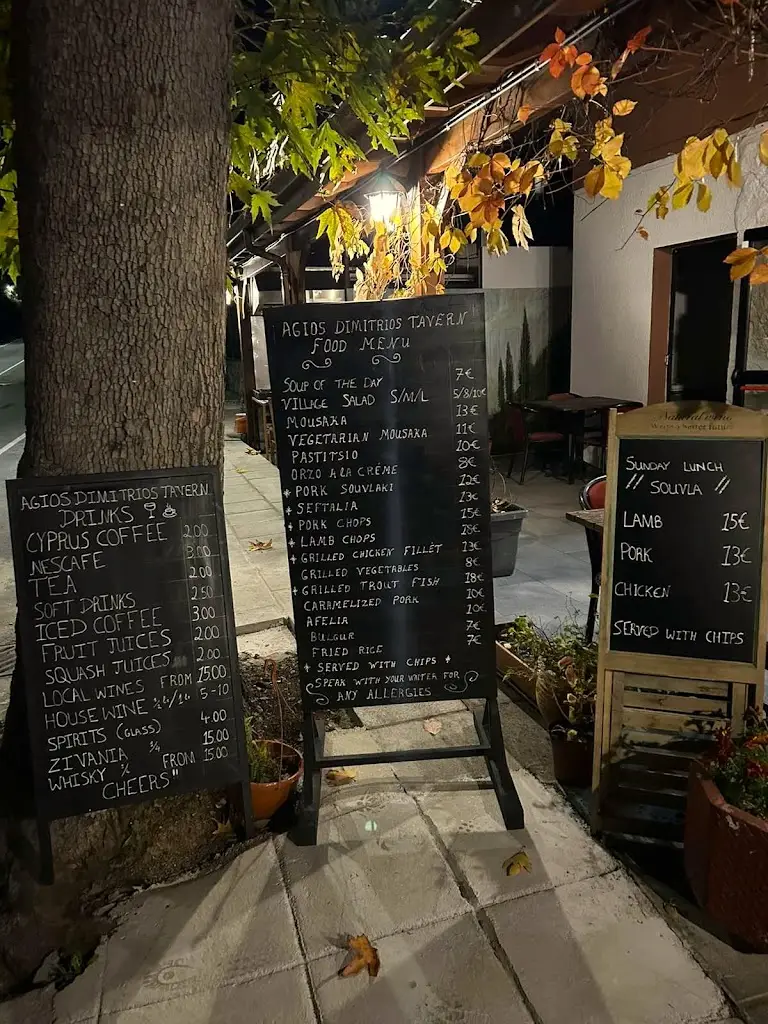 AGIOS DIMITRIOS TAVERN
DRINKS
CYPRUS COFFEE 2.00
NESCAFE 3.00
TEA 2.00
SOFT DRINKS 2.50
ICED COFFEE 3.00
FRUIT JUICES 2.00
SQUASH JUICES 2.00
LOCAL WINES FROM 1500
HOUSE WINE 5-10
SPIRITS (GLASS) 4.00
ZIVANIA 1/4 15.00
WHISKY FROM 15.00
CHEERS"
AGIOS DIMITRIOS TAVERN
FOOD MENU
SOUP OF THE DAY 7€
VILLAGE SALAD S/M/L 5/8/10€
MOUSAKA 13€
VEGETARIAN MOUSAKA 11€
PASTITSIO 10€
ORZO A LA CRÈME 8€
+ PORK SOUVLAKI 12€
+ SEFTALIA 13€
+ PORK CHOPS 15€
+ LAMB CHOPS 18€
+ GRILLED CHICKEN FILLET 13€
GRILLED VEGETABLES 8€
+ GRILLED TROUT FISH 18€
CARAMELIZED PORK 10€
AFELIA 10€
BULGUR 7€
FRIED RICE 7€
+ SERVED WITH CHIPS +
SPEAK WITH YOUR WAITER FOR
ANY ALLERGIES
SUNDAY LUNCH
// SOUVLA //
LAMB 15€
PORK 13€
CHICKEN 13€
SERVED WITH CHIPS